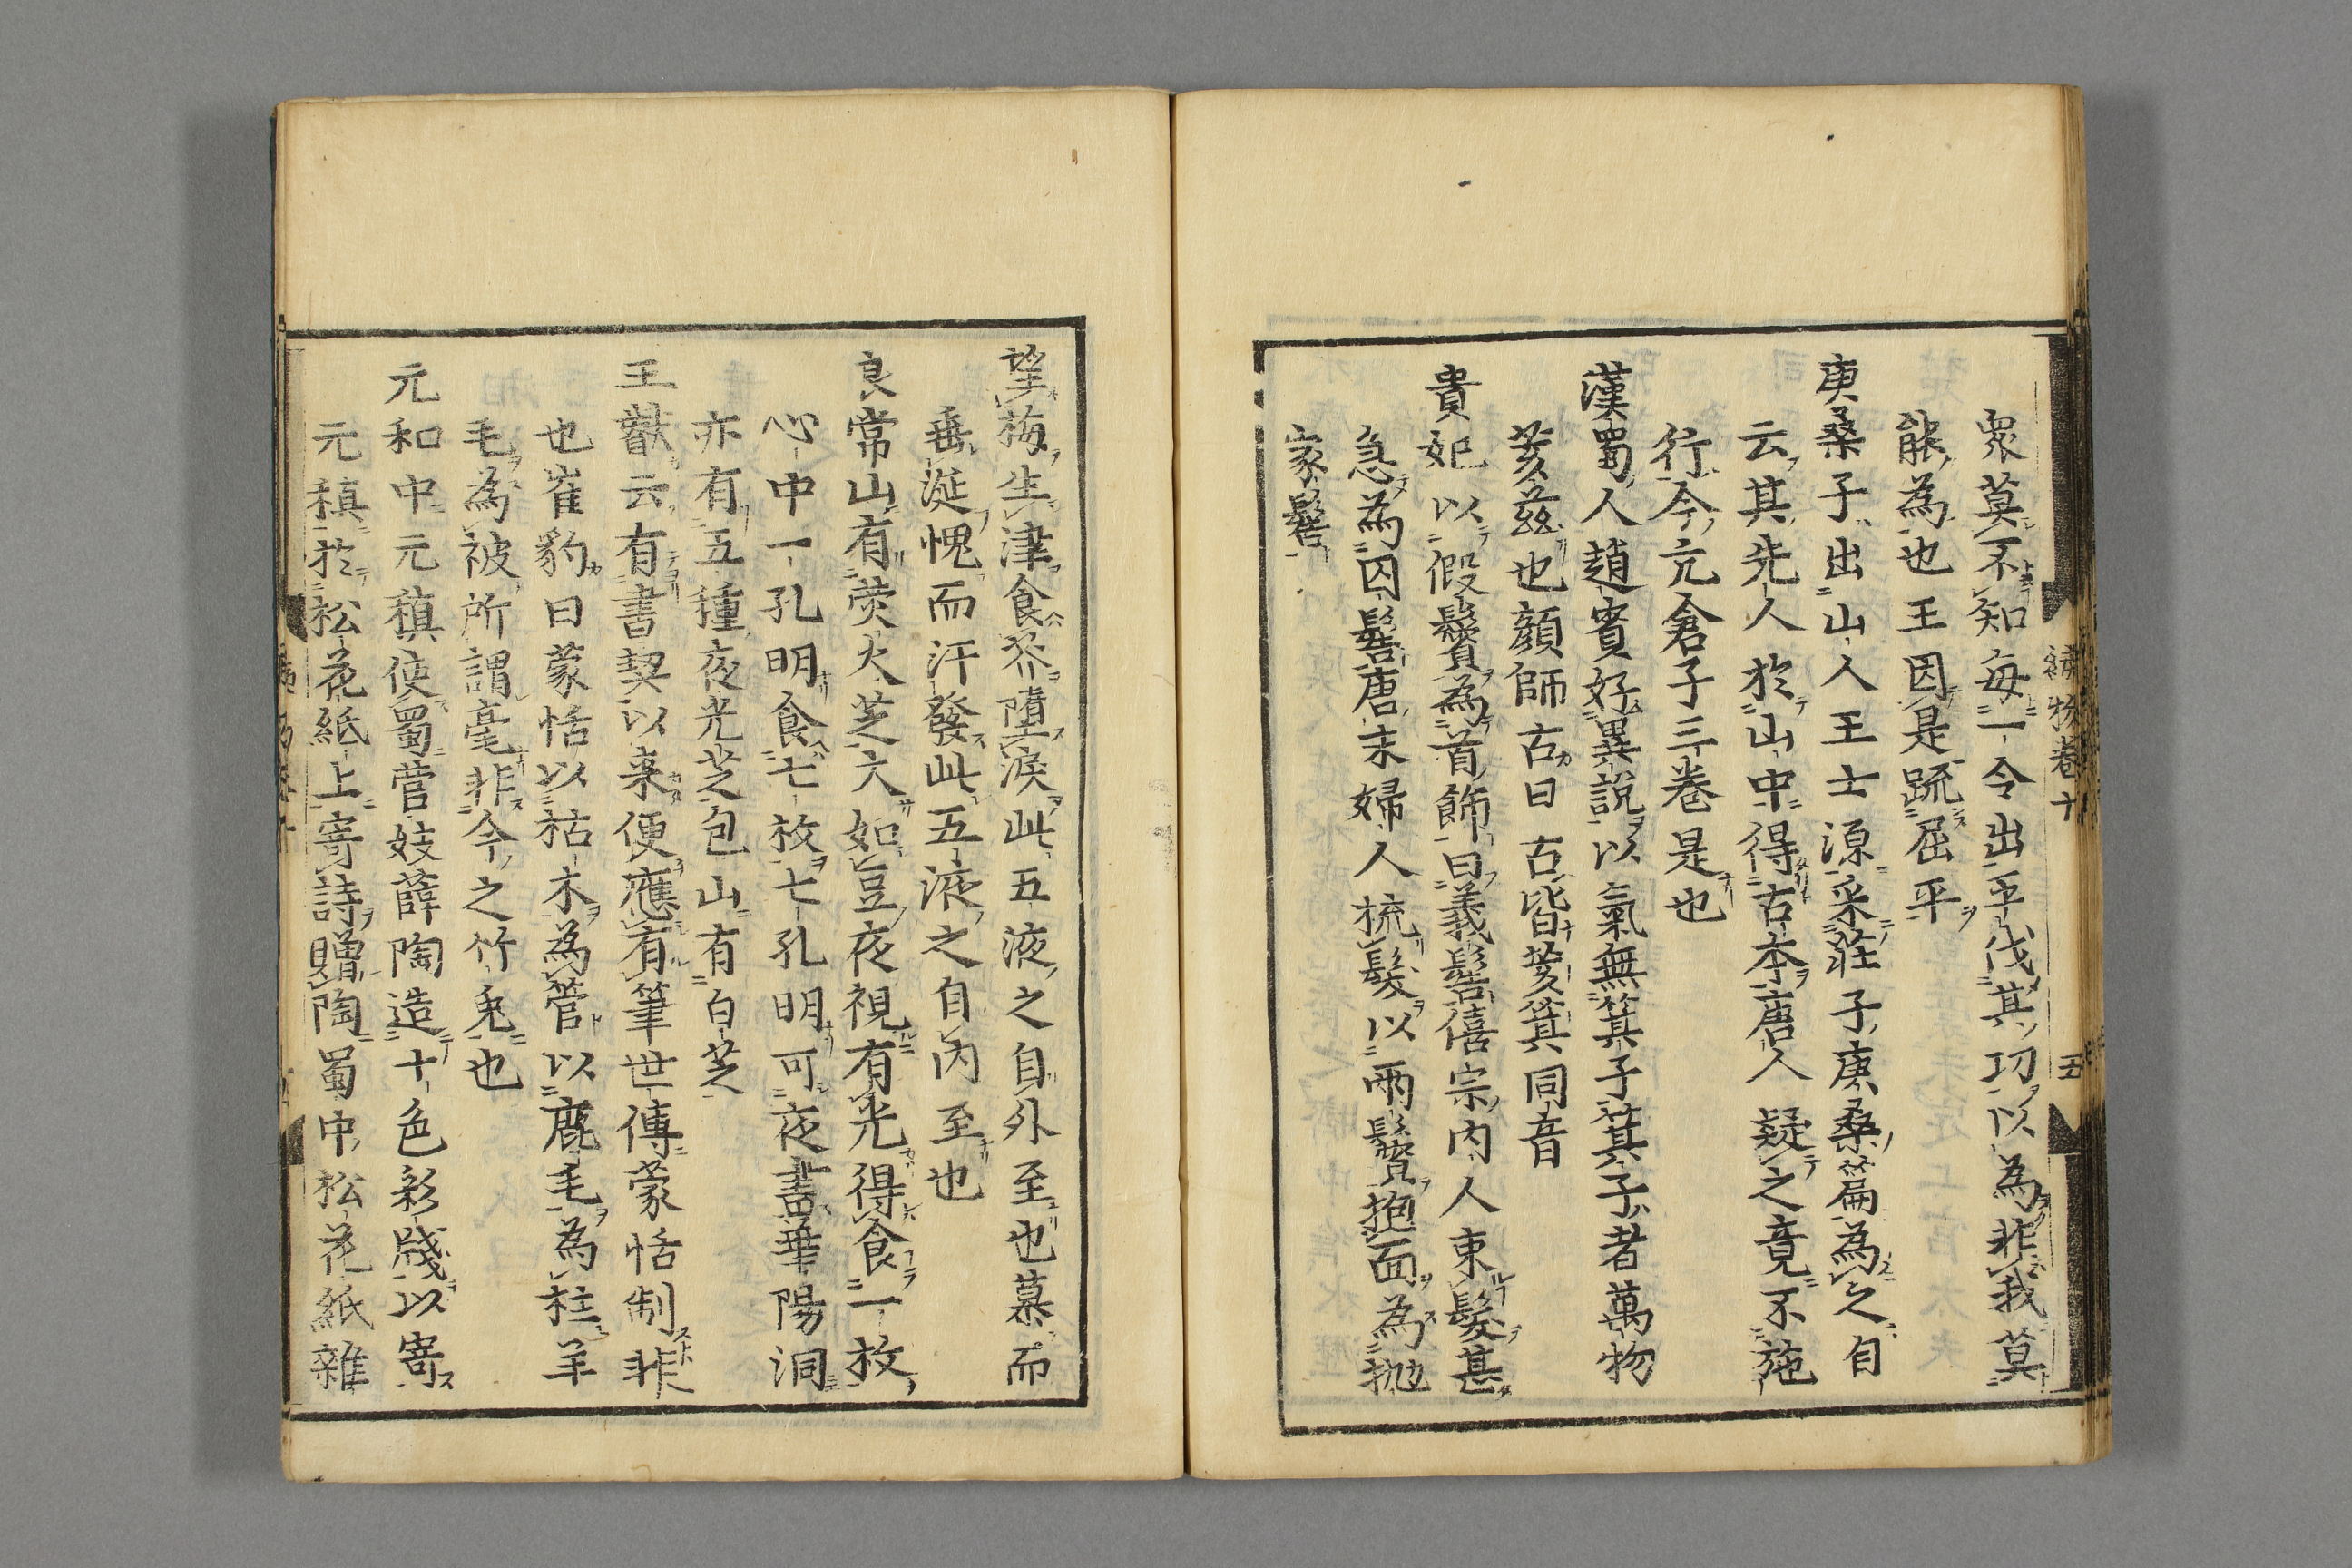 衆莫不知每一令出平伐其功以為非我莫
能為也王因是䟽屈平
庚桑子出山人王士源采莊子庚桑篇為之自
云其先人於山中得古本唐人疑之竟不施
行今亢倉子三卷是也
漢蜀人趙賓好異說以氣無箕子箕子者萬物
荄兹也顔師古曰古皆荄箕同音
貴妃以假鬢為首飾曰義髻僖宗内人束髮甚
急為囚髻唐末婦人梳髮以兩鬢抱面為抛
家髻
繍物卷十
五
望梅生津食芥墮淚此五液之自外至也慕而
垂涎愧而汗發此五液之自内至也
良常山有熒火芝大如豆夜視有光得食一枚
心中一孔明食七枚七孔明可夜書華陽洞
亦有五種夜光芝包山有白芝
王歡云有書契以來便應有筆世傳蒙恬制非
也崔豹曰蒙恬以枯木為管以鹿毛為柱羊
毛為被所謂毫非今之竹兎也
元和中元稹使蜀營妓薛陶造十色彩牋以寄
元稹於松花紙上寄詩贈陶蜀中松花紙雜